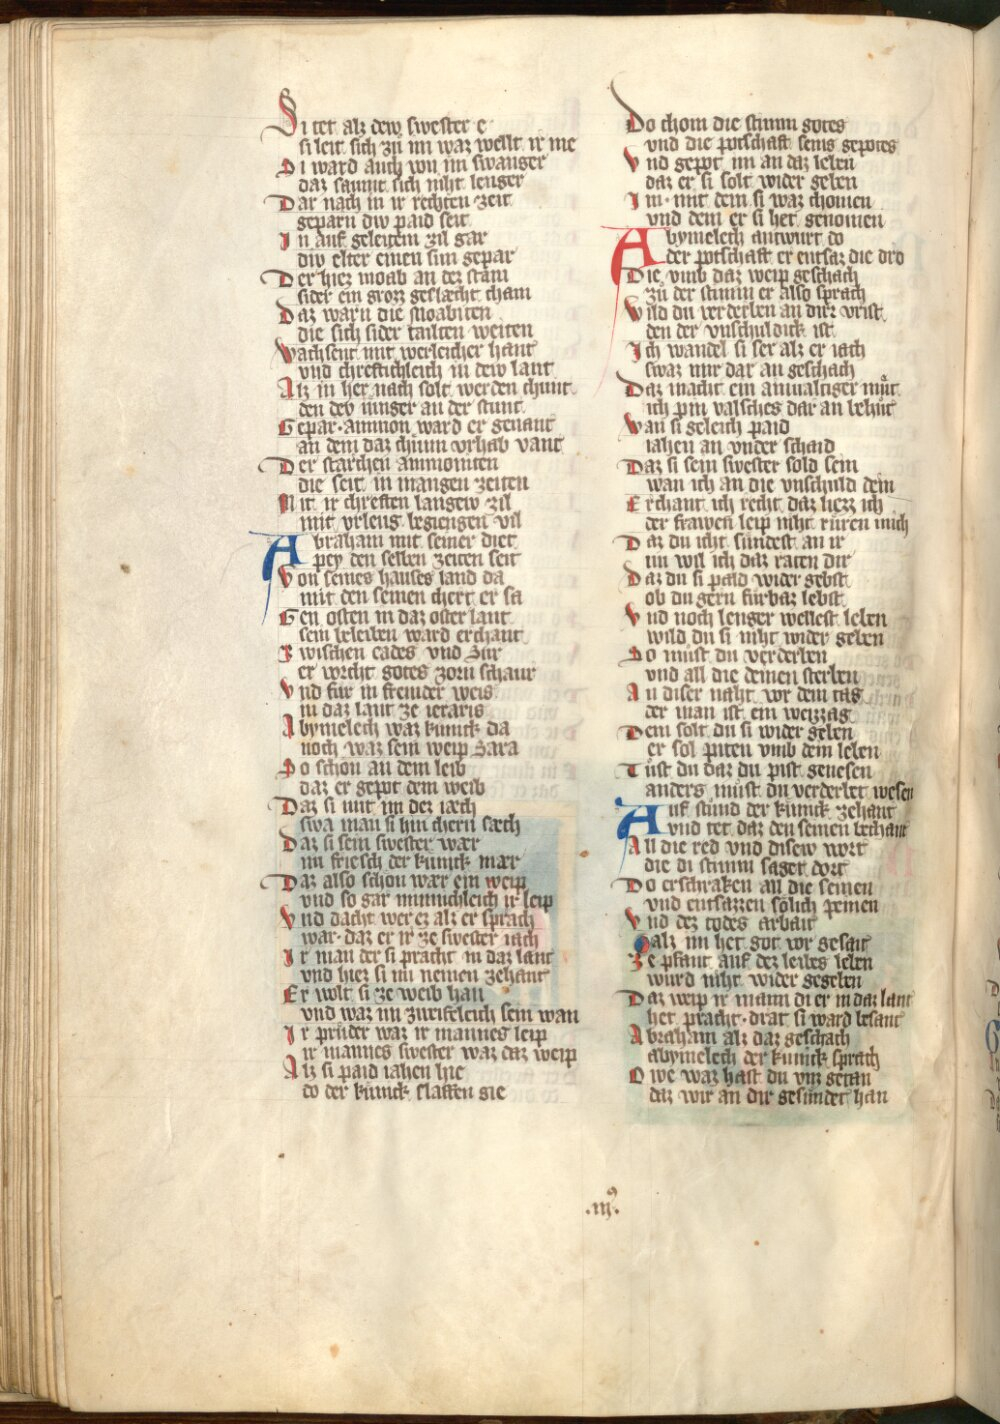 Si tet alz dew swester e
si leit sich zü im waz wellt ir me
Si ward auch von im swanger
daz saumt sich niht lenger
Dar nach in ir rechten zeit
geparn diw paid seit
In auf geleitem zil gar
diw elter einen sun gepar
Der hiez moab an dez stam
sider ein groz geslæcht cham
Daz warn die moabiten
die sich sider tailten weiten
Wachsent mit werleicher hant
vnd chreftichleich in dew lant
Alz in her nach solt werden chunt
den dev iunger an der stunt
Gepar· ammon ward er genant
an dem daz chunn vrhab vant
Der starchen ammoniten
die seit in mangen zeiten
Mit ir chreften langew zil
mit vrleug begiengen vil
Abraham mit seiner diet
pey den selben zeiten seit
Von seines hauses land da
mit den seinen chert er sa
Gen osten in daz oster lant
sein beleiben ward erchant
Zwischen cades vnd Sur
er vorcht gotes zorn schaur
Vnd für in fremder weis
in daz lant ze ieraris
Abymelech waz künick da
noch waz sein weip Sara
So schon an dem leib
daz er gepot dem weib
Daz si mit im dez iæch
swa man si hin chern sæch
Daz si sein swester wær
nu friesch der künick mær
Daz also schon wær ein weip
vnd so gar minnichleich ir leip
Vnd dacht wer ez alz er sprach
war· daz er ir ze swester iach
Ir man der si pracht in daz lant
vnd hiez si im nemen zehant
Er wolt si ze weib han
vnd waz im zweifeleich sein wan
Ir prüder waz ir mannes leip
ir mannes swester waz daz weip
Alz si paid iahen hie
do der künick slaffen gie
Do chom die stimm gotes
vnd die potschaft seins gepotes
Vnd gepot im an daz leben
daz er si solt wider geben
Im· mit dem si waz chomen
vnd dem er si het genomen
Abymelech antwurt do
der potschaft er entsaz die dro
Die vmb daz weip geschach
zü der stimm er also sprach
Wild du verderben an dirr vrist
den der vnschuldick ist
Ich wandel si ser alz er iach
swaz mir dar an geschach
Daz macht ein ainualtiger müt
ich pin valsches dar an behüt
Wan si geleich paid
iahen an vnder schaid
Daz si sein swester sold sein
wan ich an die vnschuld dein
Erchant ich recht daz herz ich
der frawen leip niht rüren mich
Daz du icht sündest an ir
nu wil ich daz raten dir
Daz du si pald wider gebst
ob du gern fürbaz lebst
Vnd noch lenger wellest leben
wild du si niht wider geben
So müst du verderben
vnd all die deinen sterben
An diser naht vor dem tag
der man ist ein weizzag
Dem solt du si wider geben
er sol piten vmb dein leben
Tüst du daz du pist genesen
anders müst du verderbet wesen
Auf stünd der künick zehant
vnd tet daz den seinen bechant
All die red vnd disew wort
die di stimm saget dort
Do erschraken all die seinen
vnd entsazzen sölich peinen
Vnd dez todes arbait
alz im het got vor gesait
Ze pfant auf dez leibes leben
wurd niht wider gegeben
Daz weip ir mann di er in daz lant
het pracht· drat si ward besant
Abraham alz daz geschach
abymelech der künick sprach
Owe waz hast du vns getan
daz wir an dir gesündet han
.iij⁹.